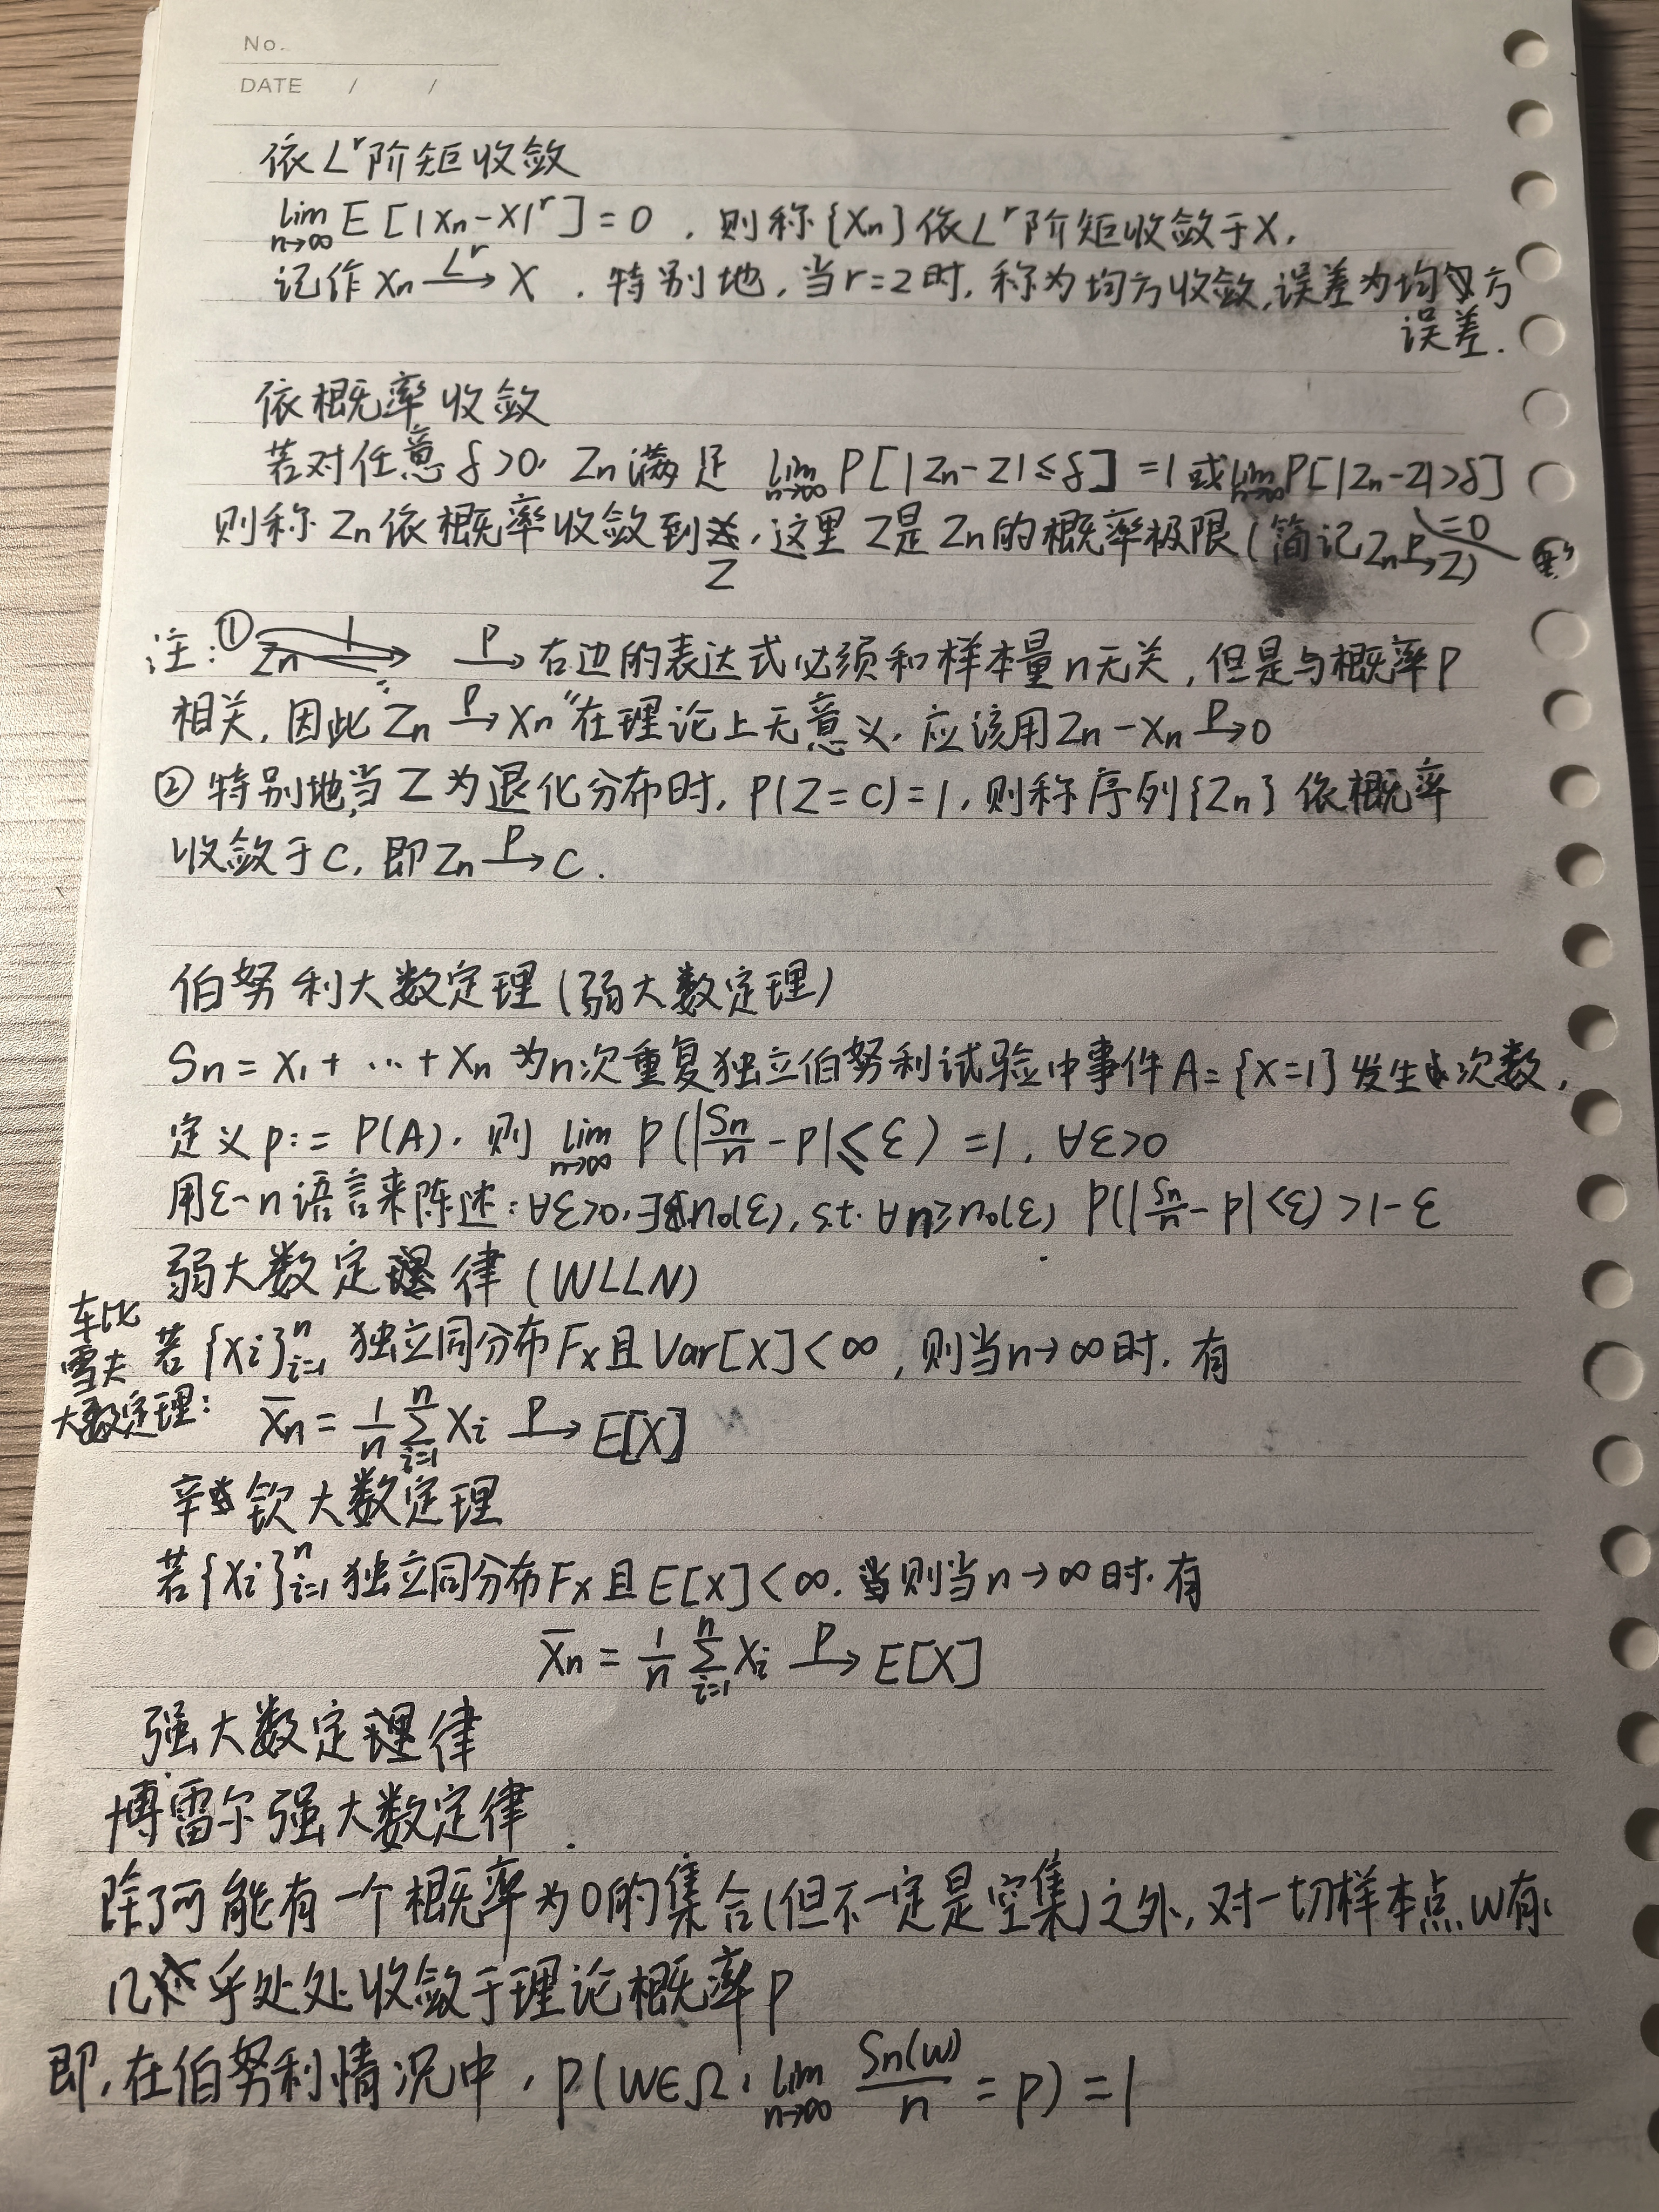 No.
DATE / /
依L^r阶矩收敛
lim_{n→∞} E[|Xn-X|^r]=0，则称{Xn}依L^r阶矩收敛于X，
记作 Xn —L^r→ X ．特别地，当r=2时，称为均方收敛，误差为均方
误差．
依概率收敛
若对任意δ>0，Zn满足 lim_{n→∞} P[|Zn-Z|≤δ]=1 或 lim_{n→∞} P[|Zn-Z|>δ]
=0
则称Zn依概率收敛到Z，这里Z是Zn的概率极限(简记Zn —P→ Z)
注：① —P→ 右边的表达式必须和样本量n无关，但是与概率P
相关，因此"Zn —P→ Xn"在理论上无意义，应该用Zn-Xn —P→ 0
② 特别地，当Z为退化分布时，P(Z=C)=1，则称序列{Zn}依概率
收敛于C，即Zn —P→ C．
伯努利大数定理(弱大数定理)
Sn=X1+…+Xn 为n次重复独立伯努利试验中事件A={X=1}发生次数，
定义p:=P(A)，则 lim_{n→∞} P(|Sn/n-p|≤ε)=1，∀ε>0
用ε-n语言来陈述：∀ε>0，∃n0(ε)，s.t. ∀n≥n0(ε) P(|Sn/n-p|<ε)>1-ε
弱大数定律(WLLN)
车比
雪夫
大数定理：
若{Xi}_{i=1}^n 独立同分布Fx且Var[X]<∞，则当n→∞时，有
X̄n=1/n Σ_{i=1}^n Xi —P→ E[X]
辛钦大数定理
若{Xi}_{i=1}^n 独立同分布Fx且E[X]<∞，则当n→∞时，有
X̄n=1/n Σ_{i=1}^n Xi —P→ E[X]
强大数定律
博雷尔强大数定律
除了可能有一个概率为0的集合(但不一定是空集)之外，对一切样本点w有
几乎处处收敛于理论概率p
即，在伯努利情况中，P(w∈Ω：lim_{n→∞} Sn(w)/n=p)=1